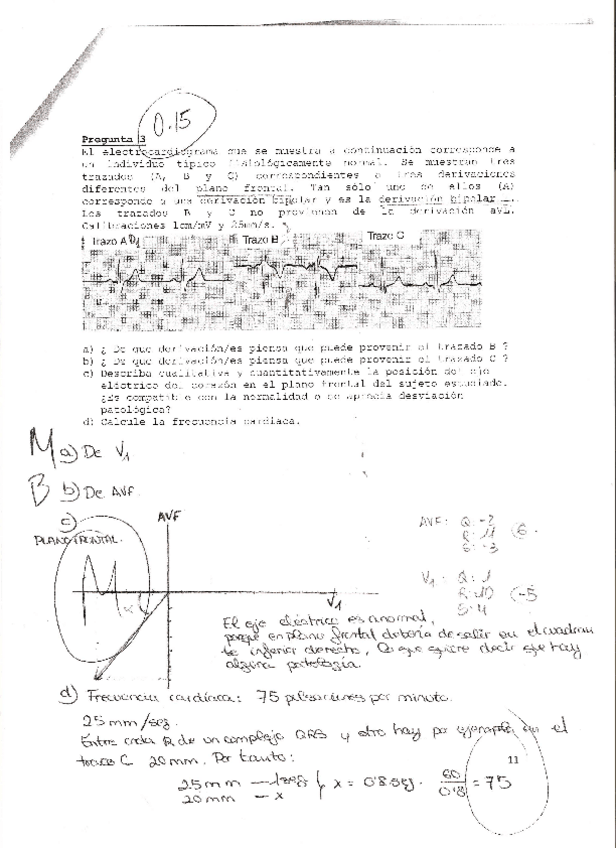 0.15
Pregunta 3
El electrocardiograma que se muestra a continuación corresponde a
un individuo típico fisiológicamente normal. Se muestran tres
trazados (A, B y C) correspondientes a tres derivaciones
diferentes del plano frontal. Tan sólo uno de ellos (A)
corresponde a una derivación bipolar y es la derivación bipolar
Los trazados B y C no provienen de la derivación aVL.
Calibraciones 1cm/mV y 25mm/s.
Trazo A D1 Trazo B Trazo C
a) ¿ De que derivación/es piensa que puede provenir el trazado B ?
b) ¿ De que derivación/es piensa que puede provenir el trazado C ?
c) Describa cualitativa y cuantitativamente la posición del eje
eléctrico del corazón en el plano frontal del sujeto estudiado.
¿Es compatible con la normalidad o se aprecia desviación
patológica?
d) Calcule la frecuencia cardiaca.
M a) De V1
B b) De AVF.
c)
PLANO FRONTAL.
AVF
M
α
V1
AVF: Q: -2
R: 11
S: -3
6
V1: Q: 1
R: 10
S: 4
-5
El eje eléctrico es anormal,
porque en plano frontal debería de salir en el cuadran
te inferior derecho, lo que quiere decir que hay
alguna patología.
d) Frecuencia cardíaca: 75 pulsaciones por minuto.
25 mm/seg.
Entre cada R de un complejo QRS y otro hay por ejemplo en el
trazo C 20 mm. Por tanto:
25 mm — 1 seg
20 mm — x
x = 0'8 seg.
60
0'8
= 75
11